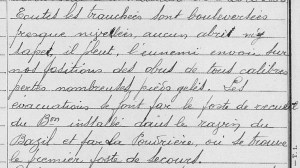 Toutes les tranchées sont bouleversées
presque nivelées, aucun abri, ni
sape, il pleut, l'ennemi envoie sur
nos positions des obus de tous calibres
pertes nombreuses, pieds gelés. Les
évacuations se font par le poste de recueil
du Bon installé dans le ravin du
Bazil et par la Poudrière, où se trouve
le premier poste de secours.